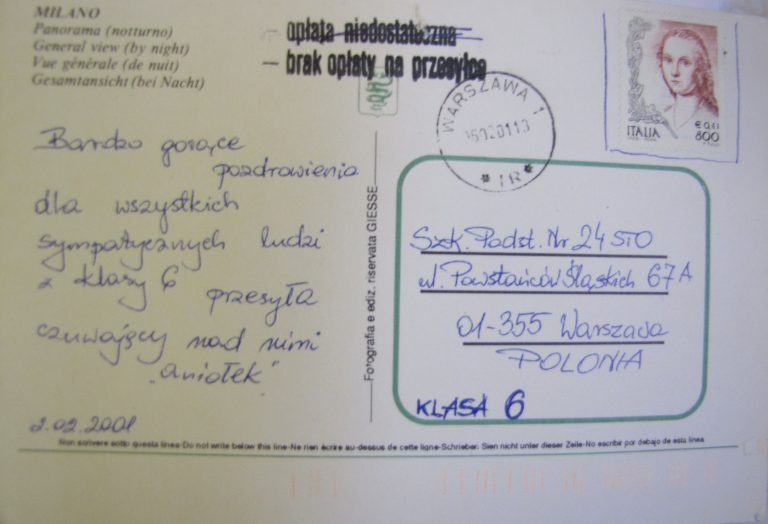 MILANO
Panorama (notturno)
General view (by night)
Vue générale (de nuit)
Gesamtansicht (bei Nacht)
- opłata niedostateczna
- brak opłaty na przesyłce
WARSZAWA 1
* 1R *
ITALIA
€ 0,41
800
Bardzo gorące
pozdrowienia
dla wszystkich
sympatycznych ludzi
z klasy 6
przesyła
czuwający nad nimi
„aniołek"
2.02.2001
Fotografia e ediz. riservata GIESSE
Szk. Podst. Nr 24 STO
ul. Powstańców Śląskich 67A
01-355 Warszawa
POLONIA
KLASA 6
Non scrivere sotto questa linea-Do not write below this line-Ne rien écrire au-dessus de cette ligne-Schrieben Sien nicht unter dieser Zeile-No escribir por debajo de esta linea